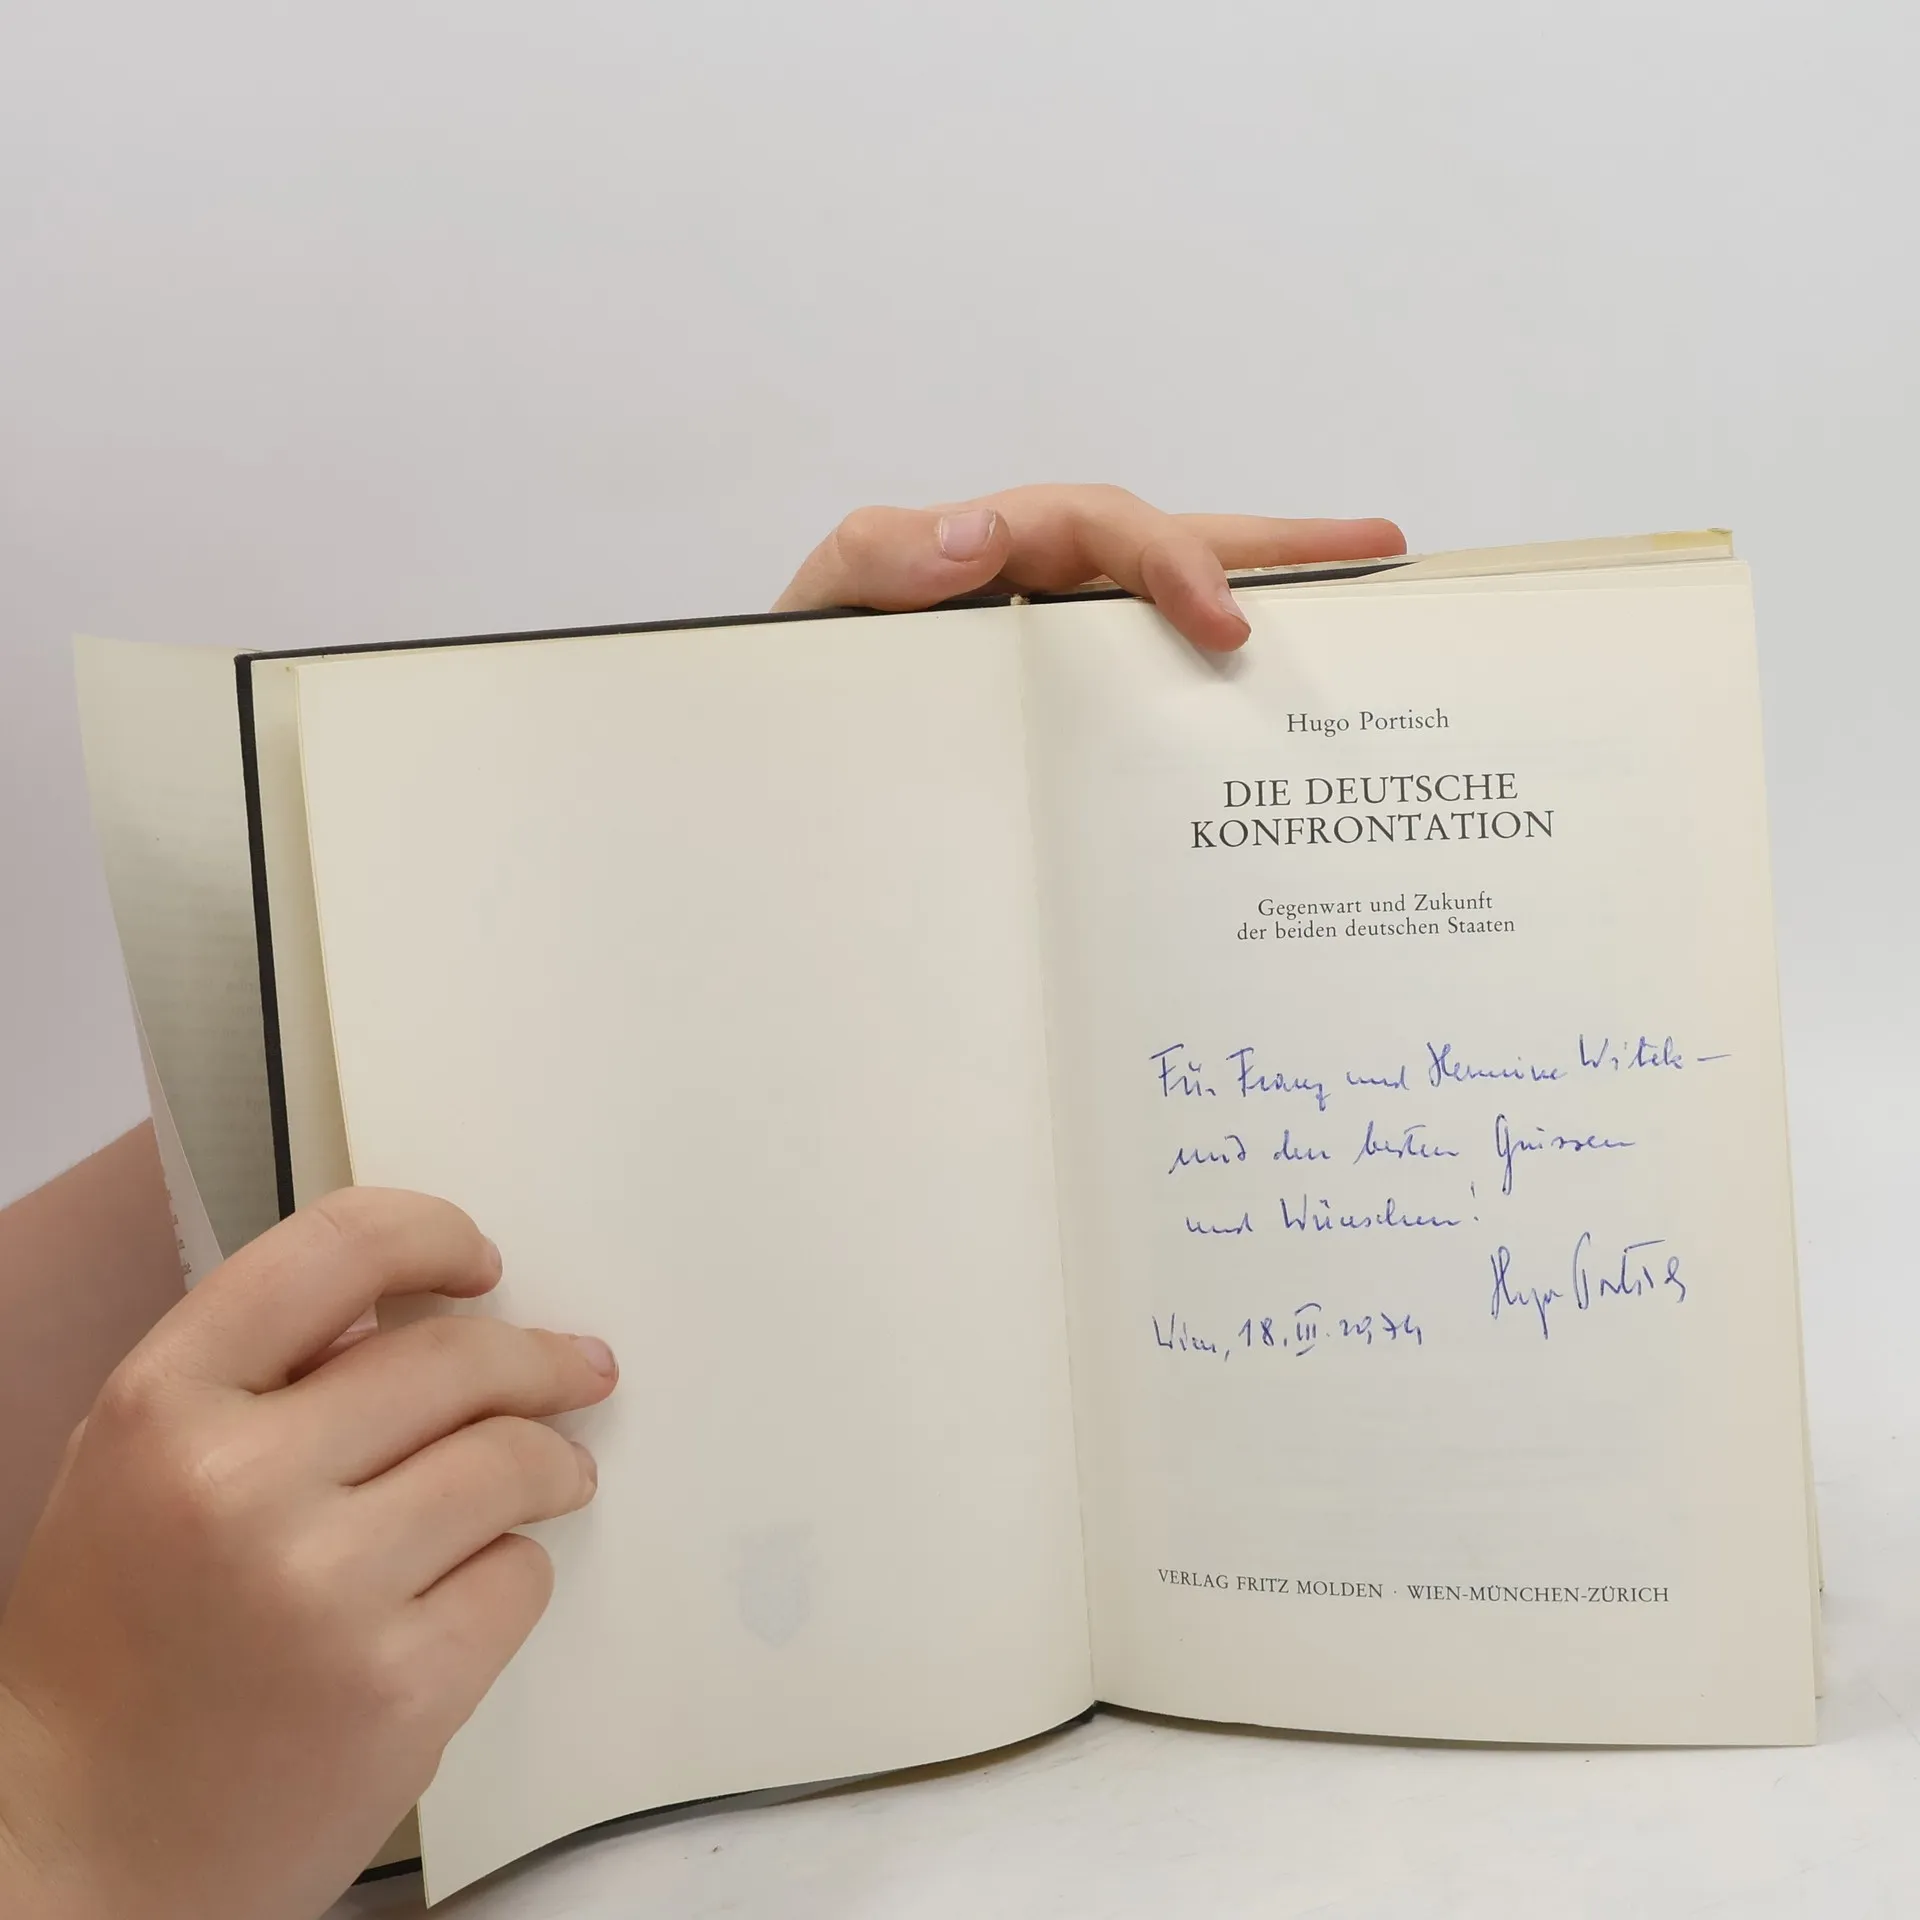 Hugo Portisch
DIE DEUTSCHE
KONFRONTATION
Gegenwart und Zukunft
der beiden deutschen Staaten
Für Franz und Hermine Witek –
mit den besten Grüssen
und Wünschen!
Hugo Portisch
Wien, 18. III. 1974
VERLAG FRITZ MOLDEN · WIEN-MÜNCHEN-ZÜRICH